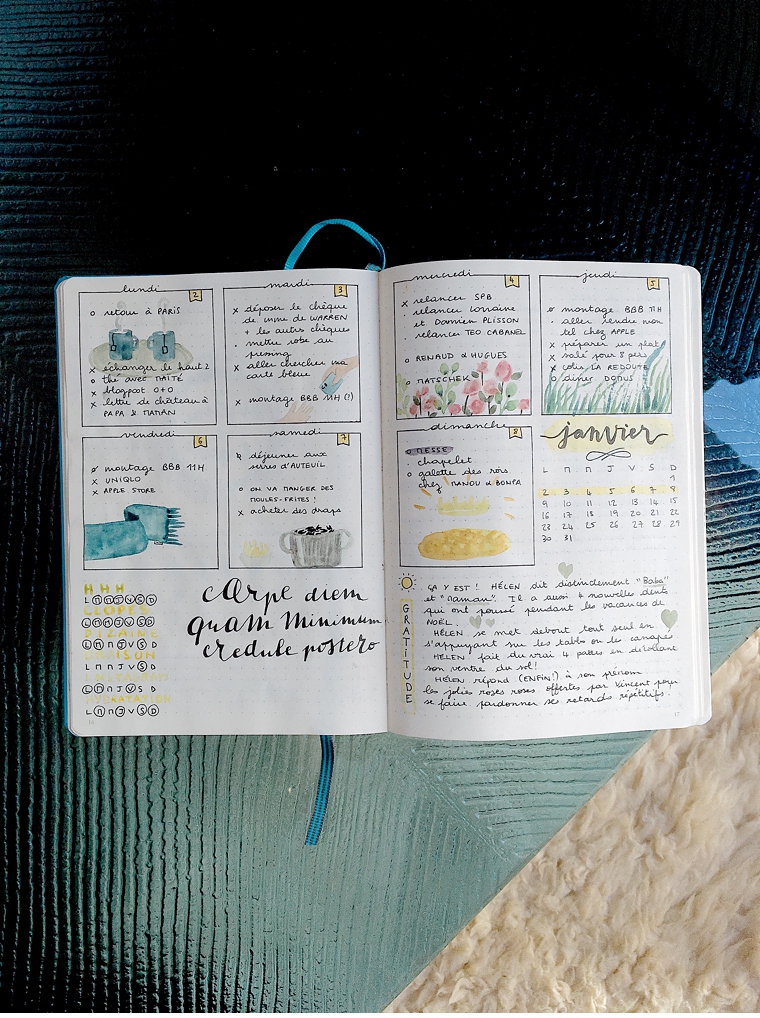 lundi
2
o retour à PARIS
L D
x échanger le haut 2
o thé avec MAÏTÉ
x blogpost 0+0
x lettre de château à
PAPA & MAMAN
mardi
3
x déposer le chèque
de mme de WARREN
+ les autres chèques
· mettre robe au
pressing
x aller chercher ma
carte bleue
x montage BBB 11H (!)
mercredi
4
x relancer SPB
· relancer Lorraine
et Damien PLISSON
· relancer TEO CABANEL
o RENAUD & HUGUES
o MATSCHEK
jeudi
5
montage BBB 11H
· aller rendre mon
tel chez APPLE
x préparer un plat
x salé pour 8 pers
x colis LA REDOUTE
o dîner DOMUS
vendredi
6
montage BBB 11H
x UNIQLO
x APPLE STORE
samedi
7
déjeuner aux
serres d'AUTEUIL
o ON VA MANGER DES
MOULES-FRITES !
x acheter des draps
dimanche
8
o MESSE
· chapelet
o galette des rois
chez MANOU & BONPA
janvier
L M M J V S D
1
2 3 4 5 6 7 8
9 10 11 12 13 14 15
16 17 18 19 20 21 22
23 24 25 26 27 28 29
30 31
H H H
L M M J V S D
CLOPES
L M M J V S D
DIZAINE
L M M J V S D
L M M J V S D
L M M J V S D
HYDRATATION
L M M J V S D
16
carpe diem
quam minimum
credule postero
GRATITUDE
ÇA Y EST ! HÉLEN dit distinctement "Baba"
et "Maman". Il a aussi 4 nouvelles dents
qui ont poussé pendant les vacances de
NOËL.
HÉLEN se met debout tout seul en
s'appuyant sur les tables ou les canapés
HÉLEN fait du vrai 4 pattes en décollant
son ventre du sol!
HÉLEN répond (ENFIN!) à son prénom
les jolies roses roses offertes par Vincent pour
se faire pardonner se retards répétitifs.
17